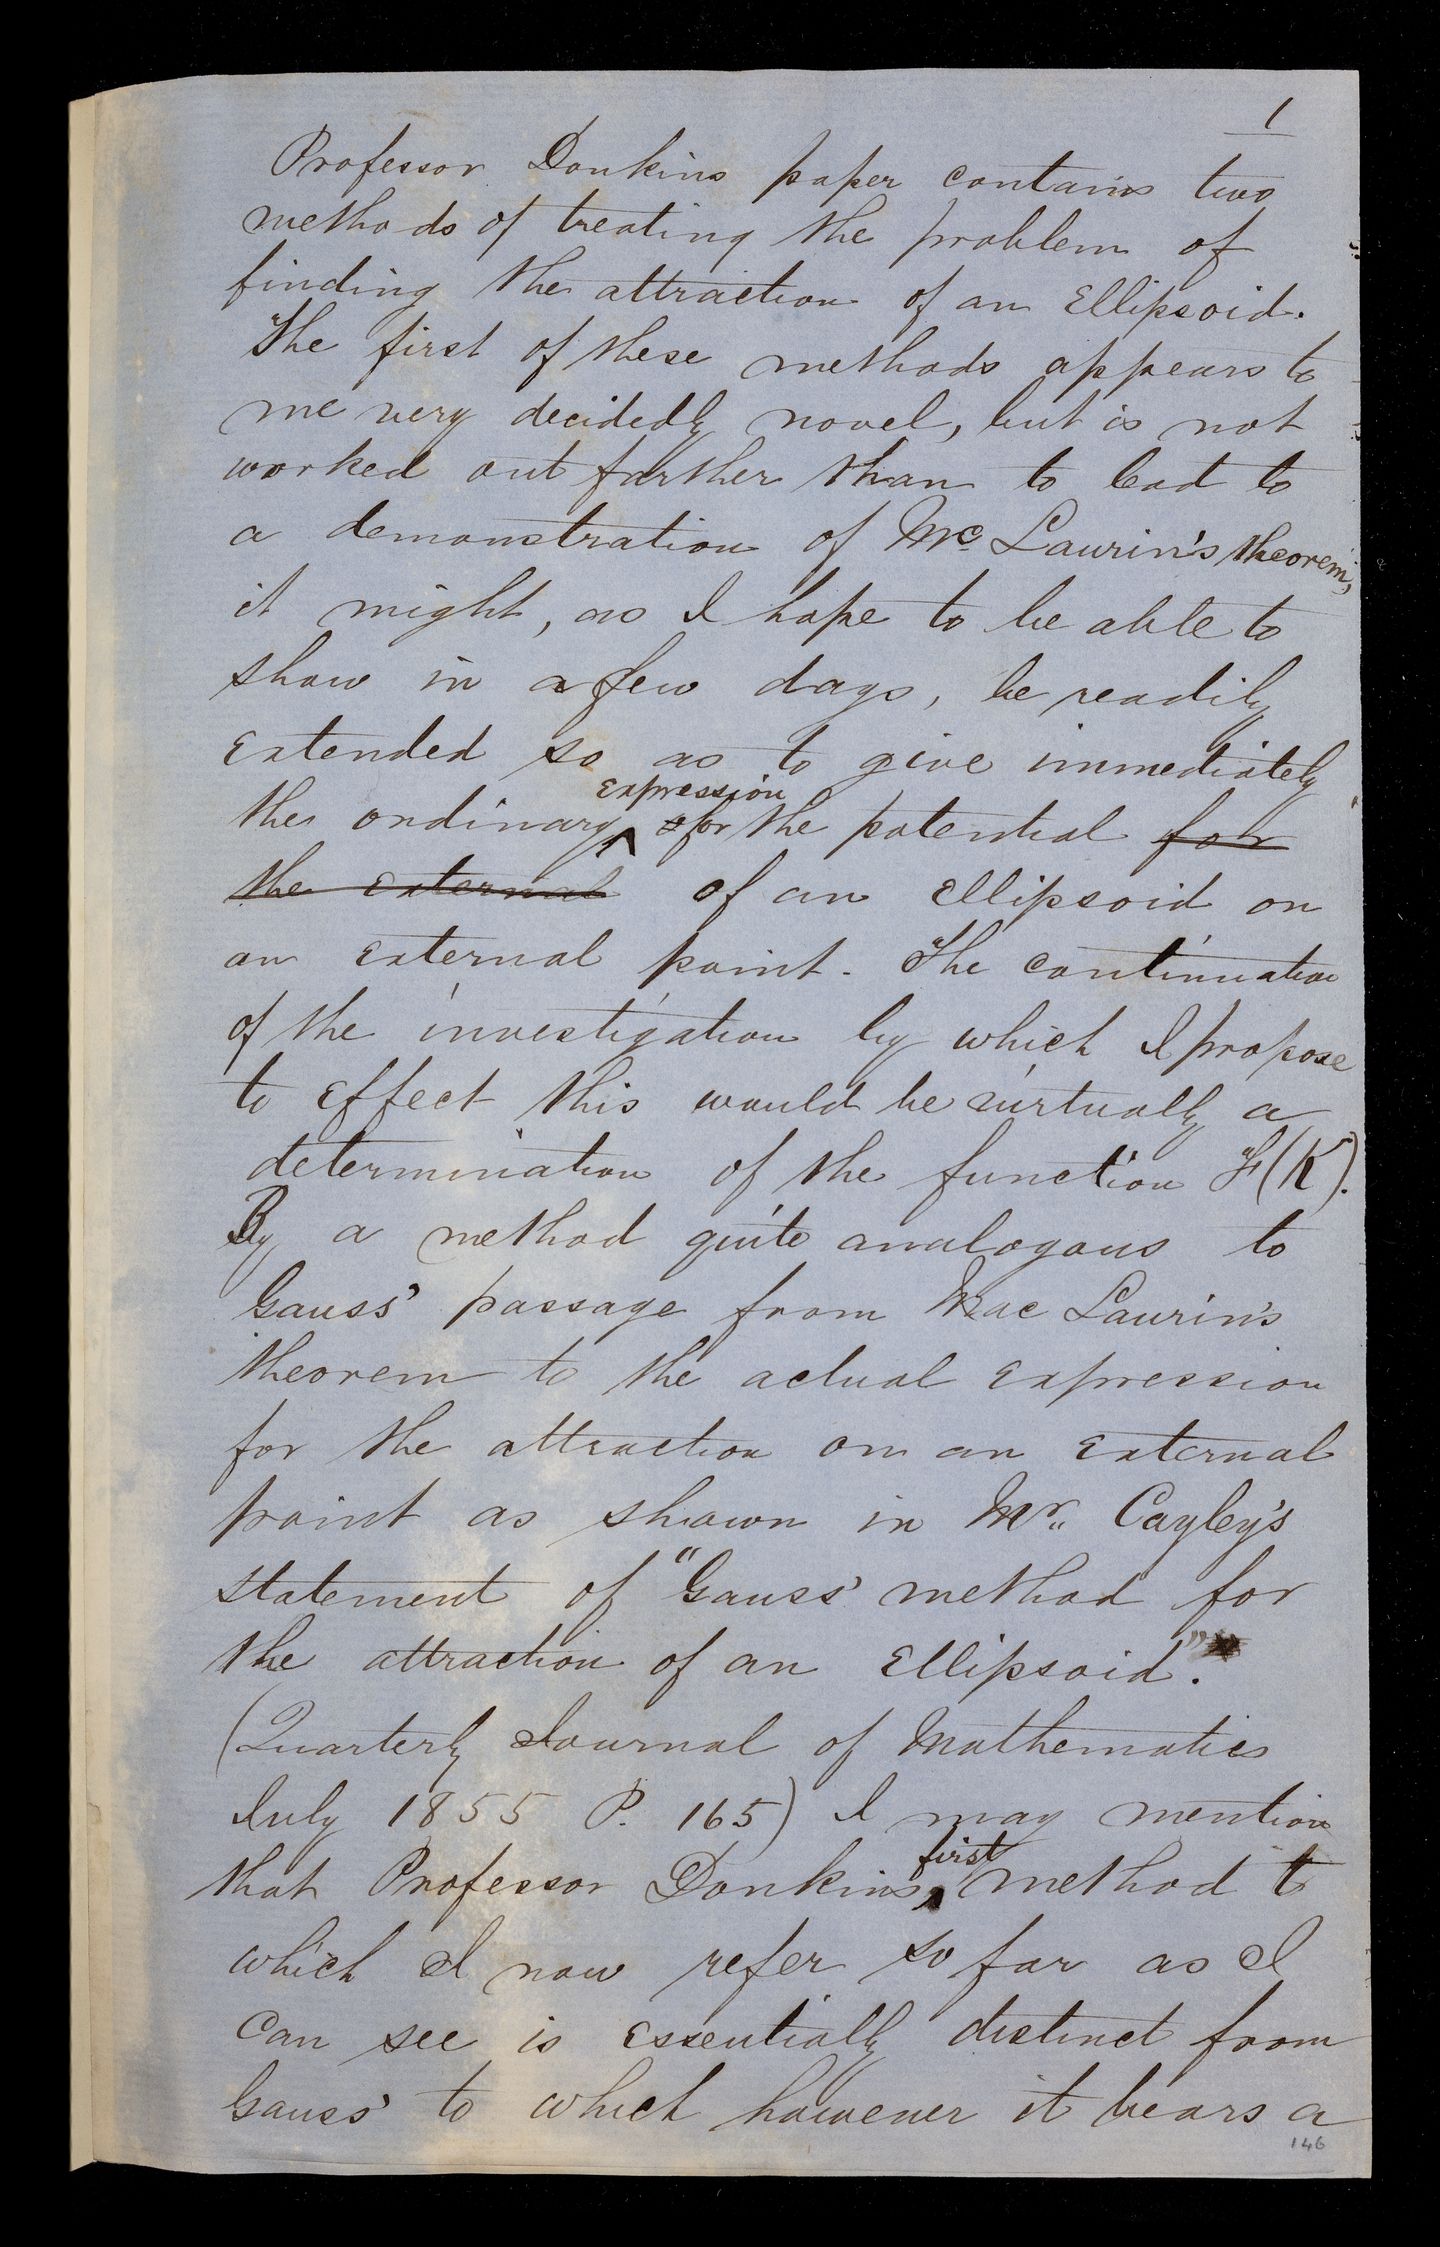 1
Professor Donkins paper contains two
methods of treating the problem of
finding the attraction of an Ellipsoid.
The first of these methods appears to
me very decidedly novel, but is not
worked out farther than to lead to
a demonstration of Mc Laurin's theorem;
it might, as I hope to be able to
show in a few days, be readily
extended so as to give immediately
expression
the ordinary ^ for the potential for
the external of an ellipsoid on
an external point. The continuation
of the investigation by which I propose
to effect this would be virtually a
determination of the function F(K).
By a method quite analogous to
Gauss' passage from Mac Laurin's
theorem to the actual expression
for the attraction on an external
point as shown in Mr. Cayley's
statement of "Gauss' method for
the attraction of an Ellipsoid".
(Quarterly Journal of Mathematics
July 1855 P. 165) I may mention
first
that Professor Donkins ^ method to
which I now refer so far as I
can see is essentially distinct from
Gauss' to which however it bears a
146